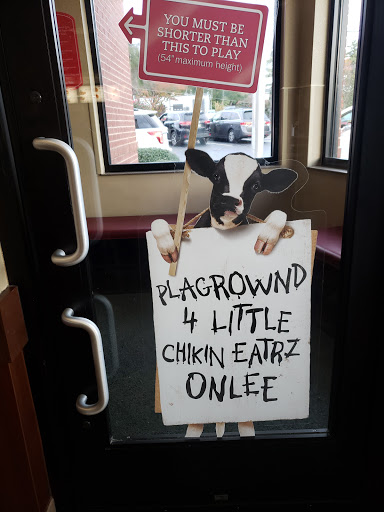 YOU MUST BE
SHORTER THAN
THIS TO PLAY
(54" maximum height)
PLAGROWND
4 LITTLE
CHIKIN EATRZ
ONLEE